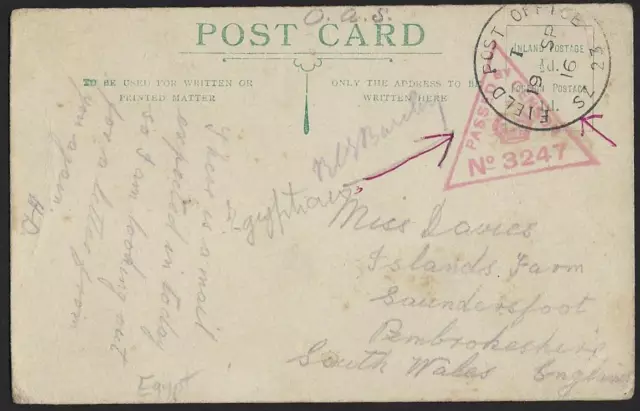 O.A.S.
POST CARD
TO BE USED FOR WRITTEN OR
PRINTED MATTER
ONLY THE ADDRESS TO BE
WRITTEN HERE
INLAND POSTAGE
½d.
FOREIGN POSTAGE
d.
FIELD POST OFFICE
SZ 23
1
SP
19
16
PASSED BY
No 3247
There is a mail
expected in today
so I am looking out
for a letter from
you again.
Egyptian
Barclay
Miss Davies
Islands Farm
Saundersfoot
Pembrokeshire
South Wales England